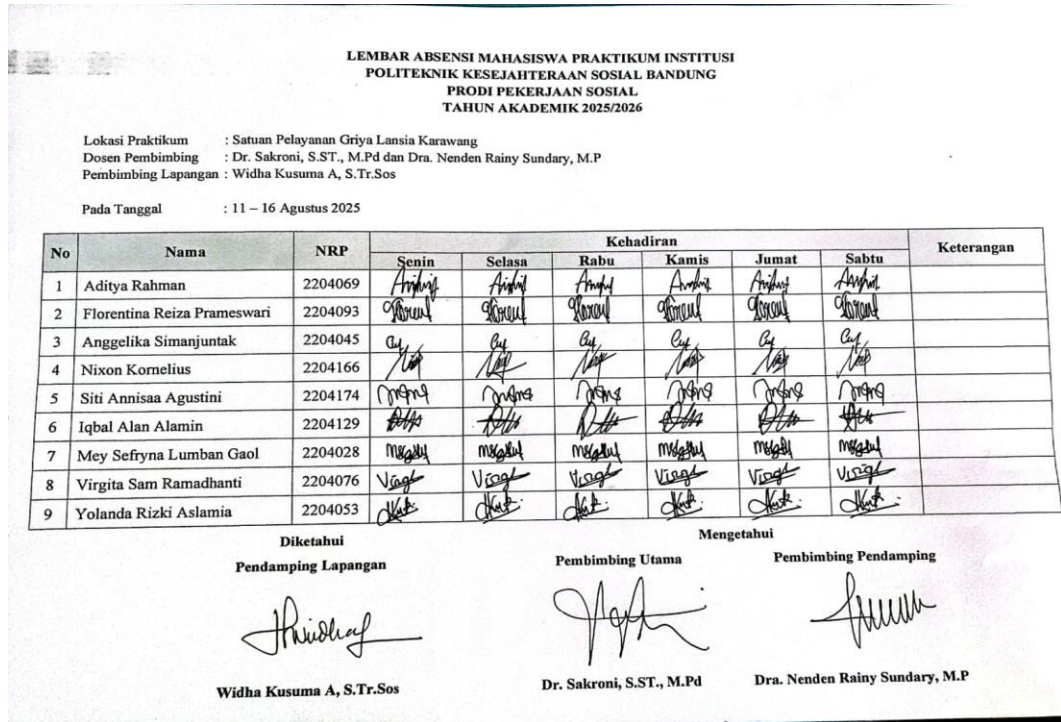 LEMBAR ABSENSI MAHASISWA PRAKTIKUM INSTITUSI
POLITEKNIK KESEJAHTERAAN SOSIAL BANDUNG
PRODI PEKERJAAN SOSIAL
TAHUN AKADEMIK 2025/2026
Lokasi Praktikum : Satuan Pelayanan Griya Lansia Karawang
Dosen Pembimbing : Dr. Sakroni, S.ST., M.Pd dan Dra. Nenden Rainy Sundary, M.P
Pembimbing Lapangan : Widha Kusuma A, S.Tr.Sos
Pada Tanggal : 11 – 16 Agustus 2025
No Nama NRP Kehadiran Keterangan
Senin Selasa Rabu Kamis Jumat Sabtu
1 Aditya Rahman 2204069
2 Florentina Reiza Prameswari 2204093
3 Anggelika Simanjuntak 2204045
4 Nixon Kornelius 2204166
5 Siti Annisaa Agustini 2204174
6 Iqbal Alan Alamin 2204129
7 Mey Sefryna Lumban Gaol 2204028
8 Virgita Sam Ramadhanti 2204076
9 Yolanda Rizki Aslamia 2204053
Diketahui Mengetahui
Pendamping Lapangan Pembimbing Utama Pembimbing Pendamping
Widha Kusuma A, S.Tr.Sos Dr. Sakroni, S.ST., M.Pd Dra. Nenden Rainy Sundary, M.P